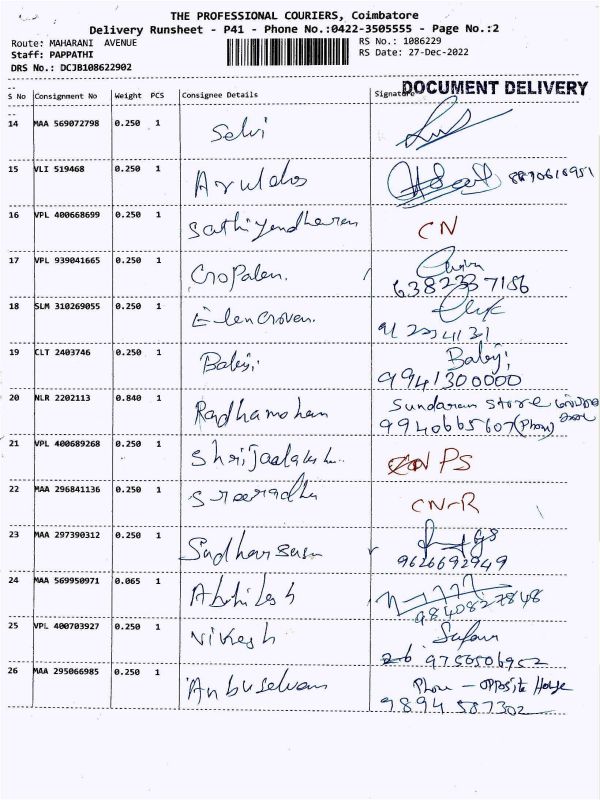 THE PROFESSIONAL COURIERS, Coimbatore
Delivery Runsheet - P41 - Phone No.:0422-3505555 - Page No.:2
Route: MAHARANI AVENUE RS No.: 1086229
Staff: PAPPATHI RS Date: 27-Dec-2022
DRS No.: DCJB108622902
DOCUMENT DELIVERY
S No Consignment No Weight PCS Consignee Details Signature
14 MAA 569072798 0.250 1 Selvi
15 VLI 519468 0.250 1 Aruldos
16 VPL 400668699 0.250 1 Sathiyendharan CN
17 VPL 939041665 0.250 1 Gopalan.
6382337156
18 SLM 310269055 0.250 1 Elencroven.
19 CLT 2403746 0.250 1 Babyi Babyi
9941300000
20 NLR 2202113 0.840 1 Radhamohan Sundaram Store
9940665607 (Phon)
21 VPL 400689268 0.250 1 PS
22 MAA 296841136 0.250 1 Sreeradha CN-R
23 MAA 297390312 0.250 1 Sudharsan
9626692949
24 MAA 569950971 0.065 1 Abhilesh
9840827848
25 VPL 400703927 0.250 1 Vikesh
9750506952
26 MAA 295066985 0.250 1 Anbuselvam Phon - opposite House
9894 587302